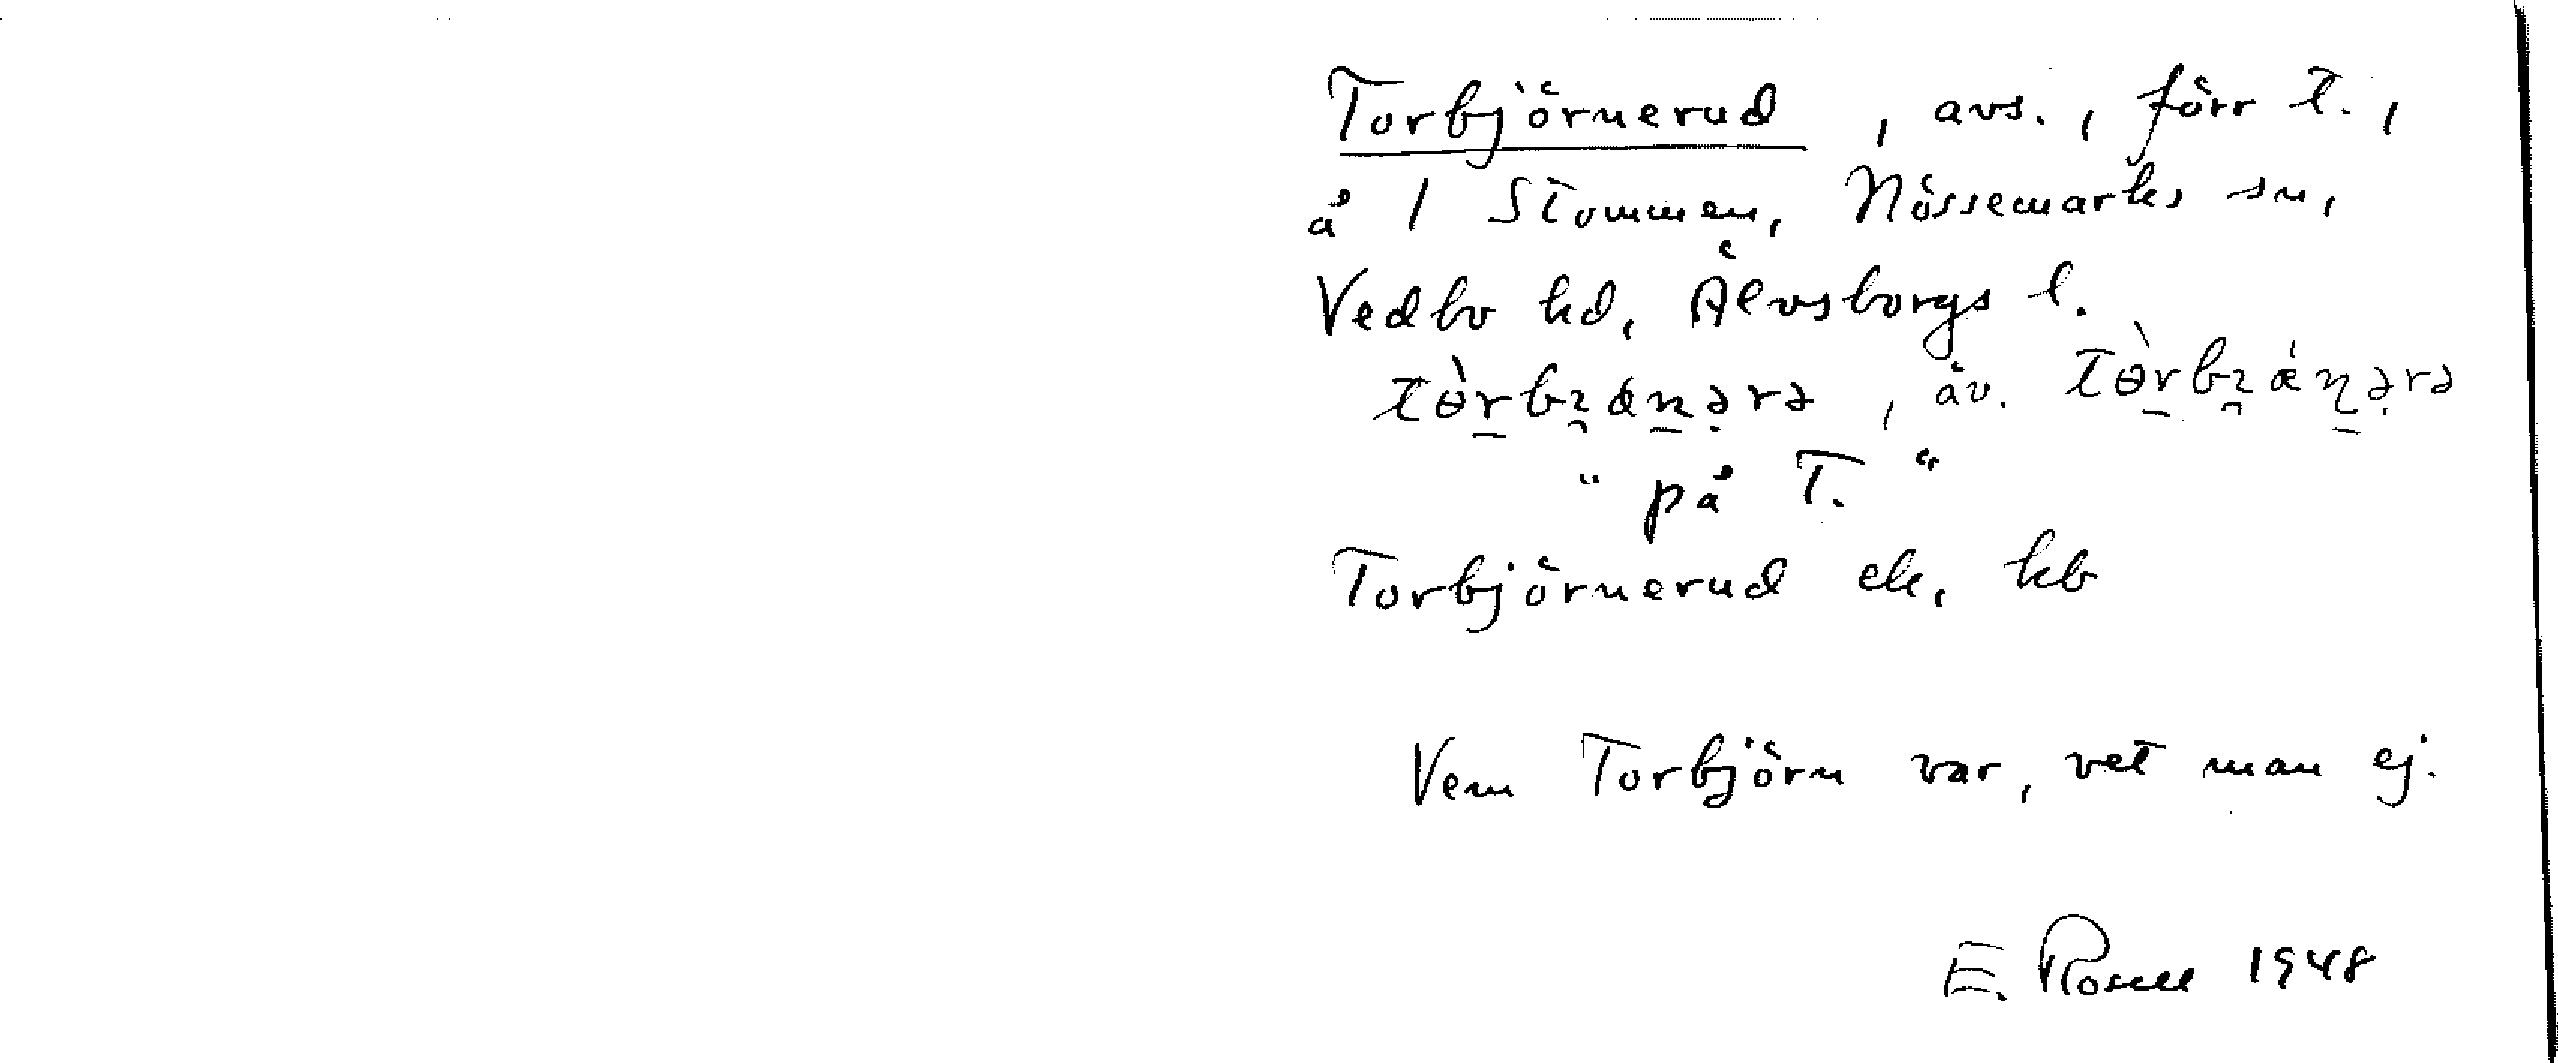 Torbjörnerud, avs., förr t.,
å 1 Stommen, Nössemarks sn,
Vedbo hd, Älvsborgs l.
, äv.
" på T. "
Torbjörnerud ek, kb
Vem Torbjörn var, vet man ej.
E. Rosell 1948